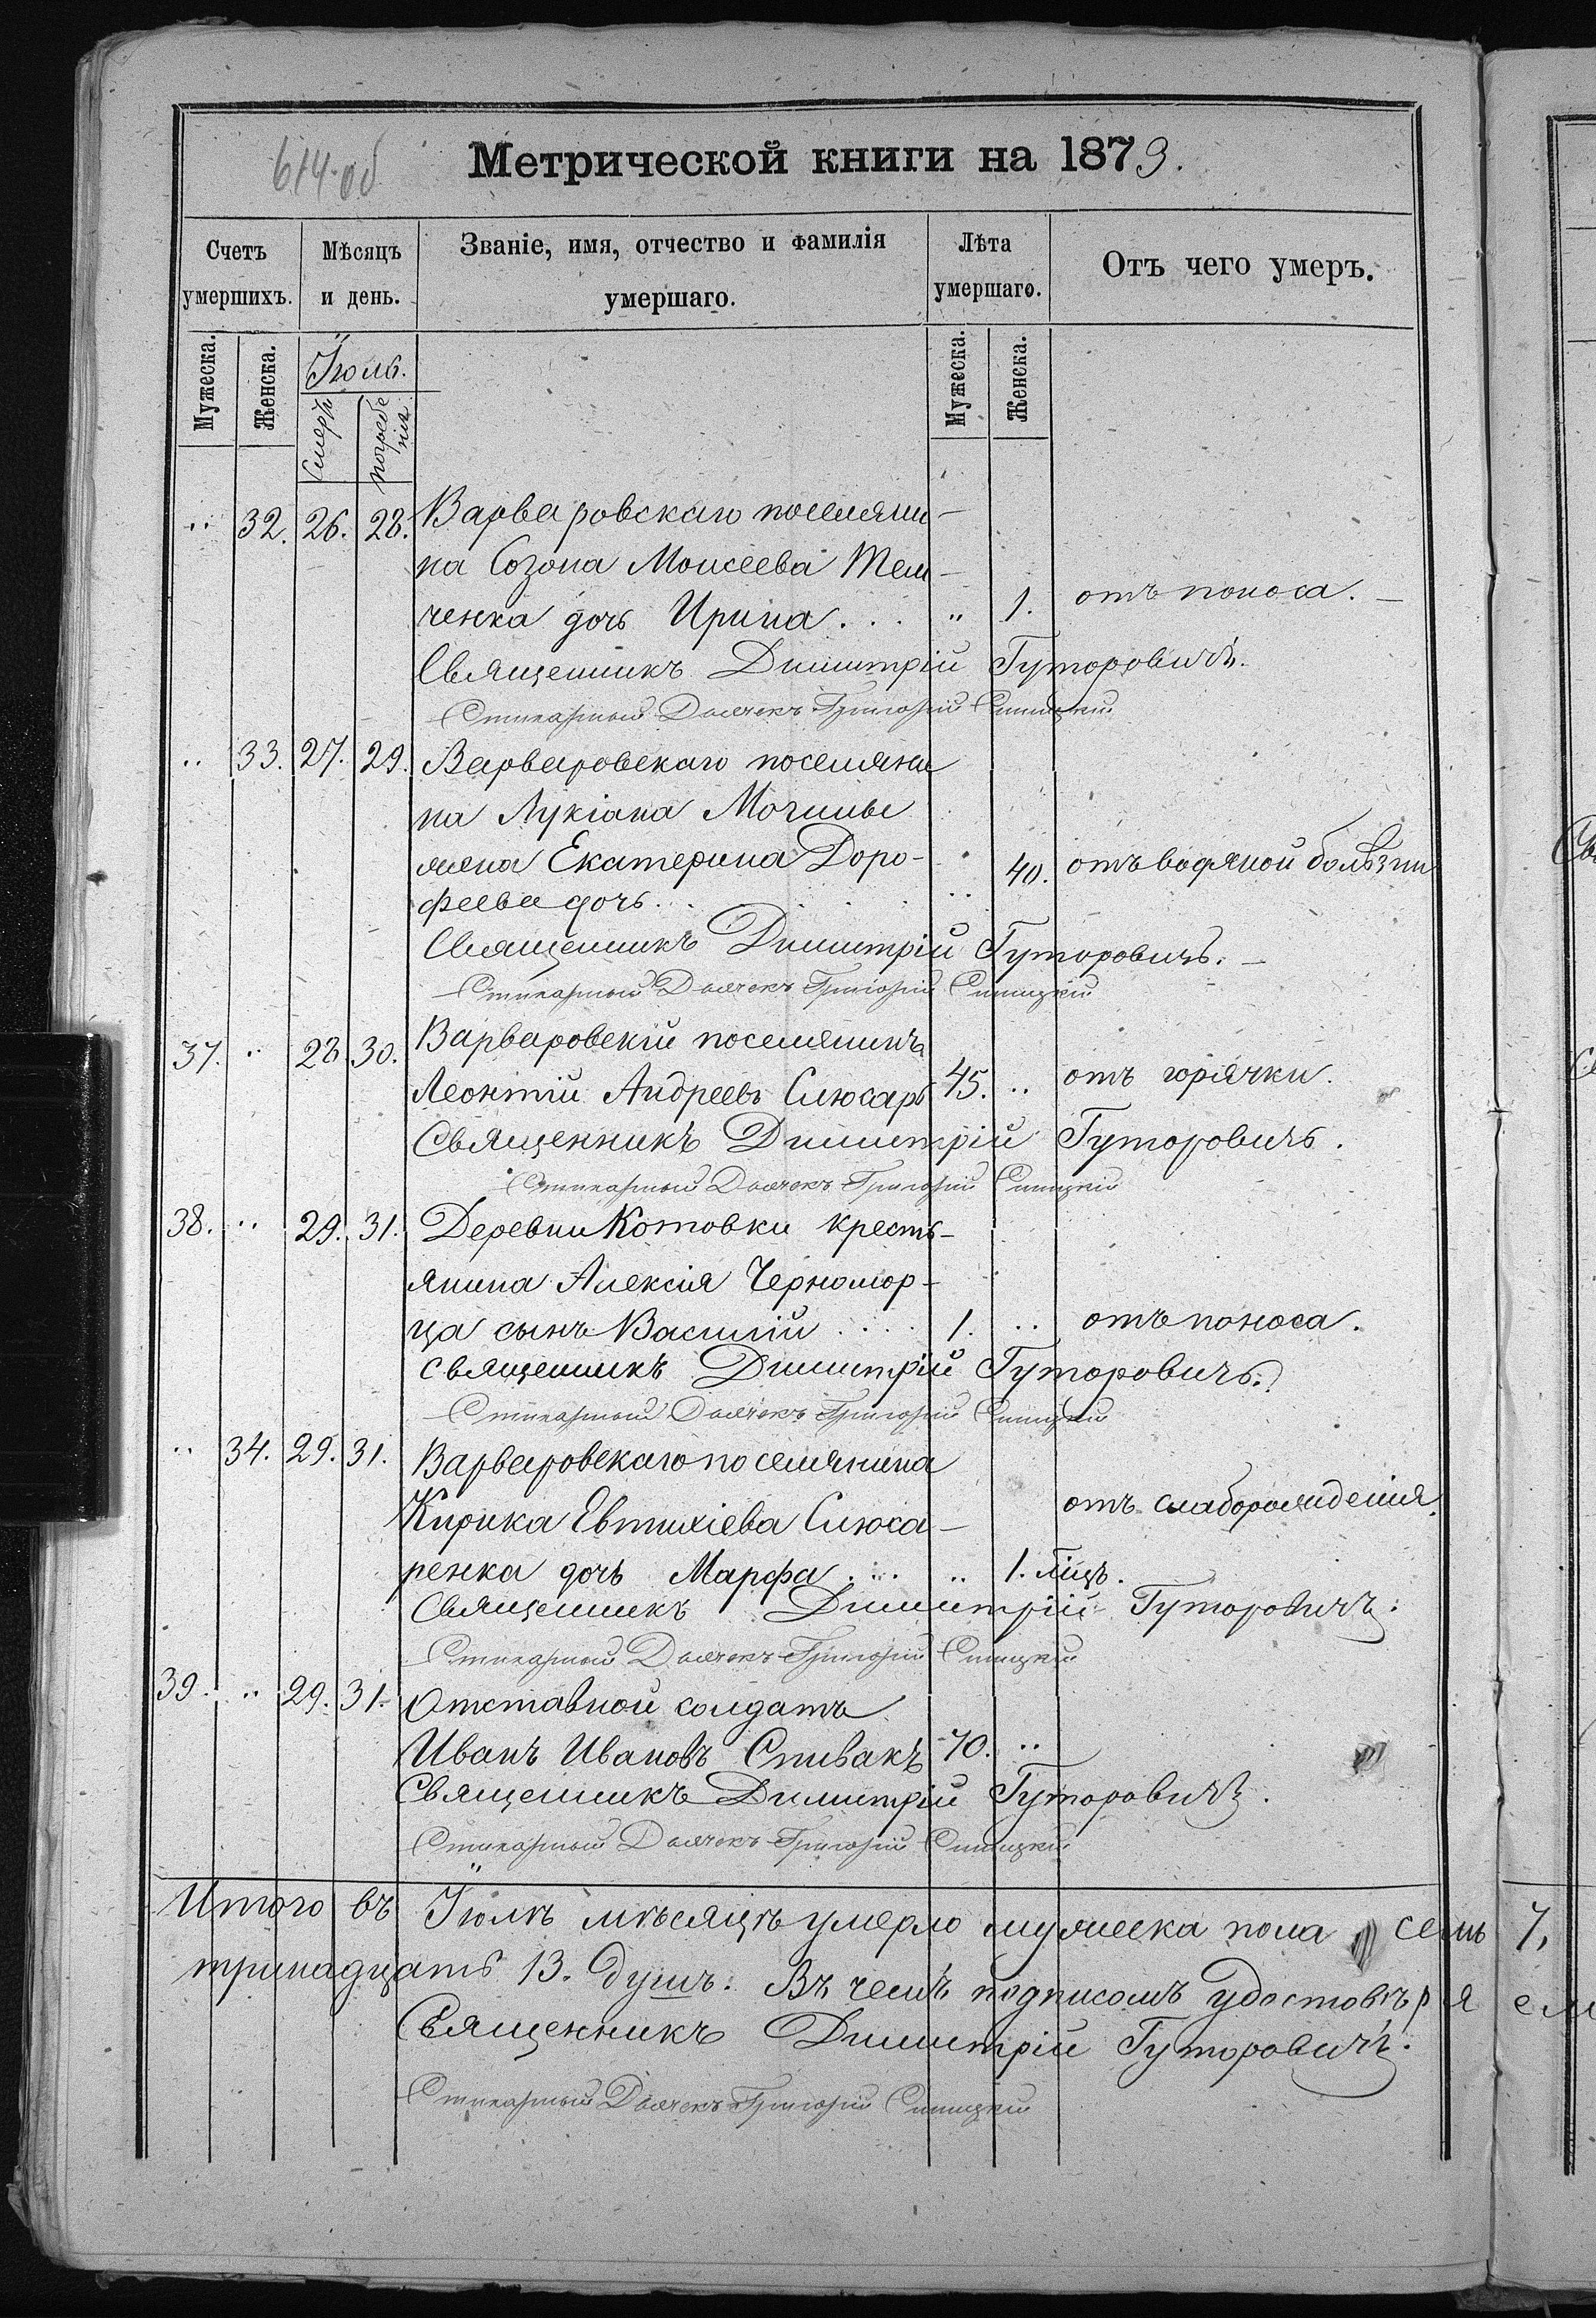 614 об
Метрической книги на 1873.
Счетъ умершихъ.
Мѣсяцъ и день.
Званіе, имя, отчество и фамилія умершаго.
Лѣта умершаго.
Отъ чего умеръ.
Мужеска. Женска.
Іюль.
Смерть погребенія
Мужеска. Женска.
" 32. 26. 28. Варваровскаго поселяни-
на Созона Моисеева Тем-
ченка дочь Ирина . . . " 1. отъ поноса.
Священникъ Димитрій Гуторовичъ.
Стихарный Дьячекъ Григорій
" 33. 27. 29. Варваровскаго поселяни
на Лукіана Мочины
жена Екатерина Доро-
феева дочь. . . " 40. отъ водяной болѣзни
Священникъ Димитрій Гуторовичъ.
Стихарный Дьячекъ Григорій
37. " 28 30. Варваровскій поселянинъ
Леонтій Андреевъ Слюсарь 45. " отъ горячки.
Священникъ Димитрій Гуторовичъ.
Стихарный Дьячекъ Григорій
38. " 29. 31. Деревни Котовки кресть-
янина Алексія Черномор-
ца сынъ Василій . . . . 1. " отъ поноса.
Священникъ Димитрій Гуторовичъ.
Стихарный Дьячекъ Григорій
" 34. 29. 31. Варваровскаго поселянина
Кирика Евтихіева Слюса-
отъ слаборожденія.
ренка дочь Марфа . . . " 1.
Священникъ Димитрій Гуторовичъ.
Стихарный Дьячекъ Григорій
39. " 29. 31. Отставной солдатъ
Иванъ Ивановъ Спивакъ 70. "
Священникъ Димитрій Гуторовичъ.
Стихарный Дьячекъ Григорій
Итого въ Іюлѣ мѣсяцѣ умерло мужеска пола семь 7,
тринадцать 13. душъ. Въ чемъ подписомъ удостовѣряем
Священникъ Димитрій Гуторовичъ.
Стихарный Дьячекъ Григорій